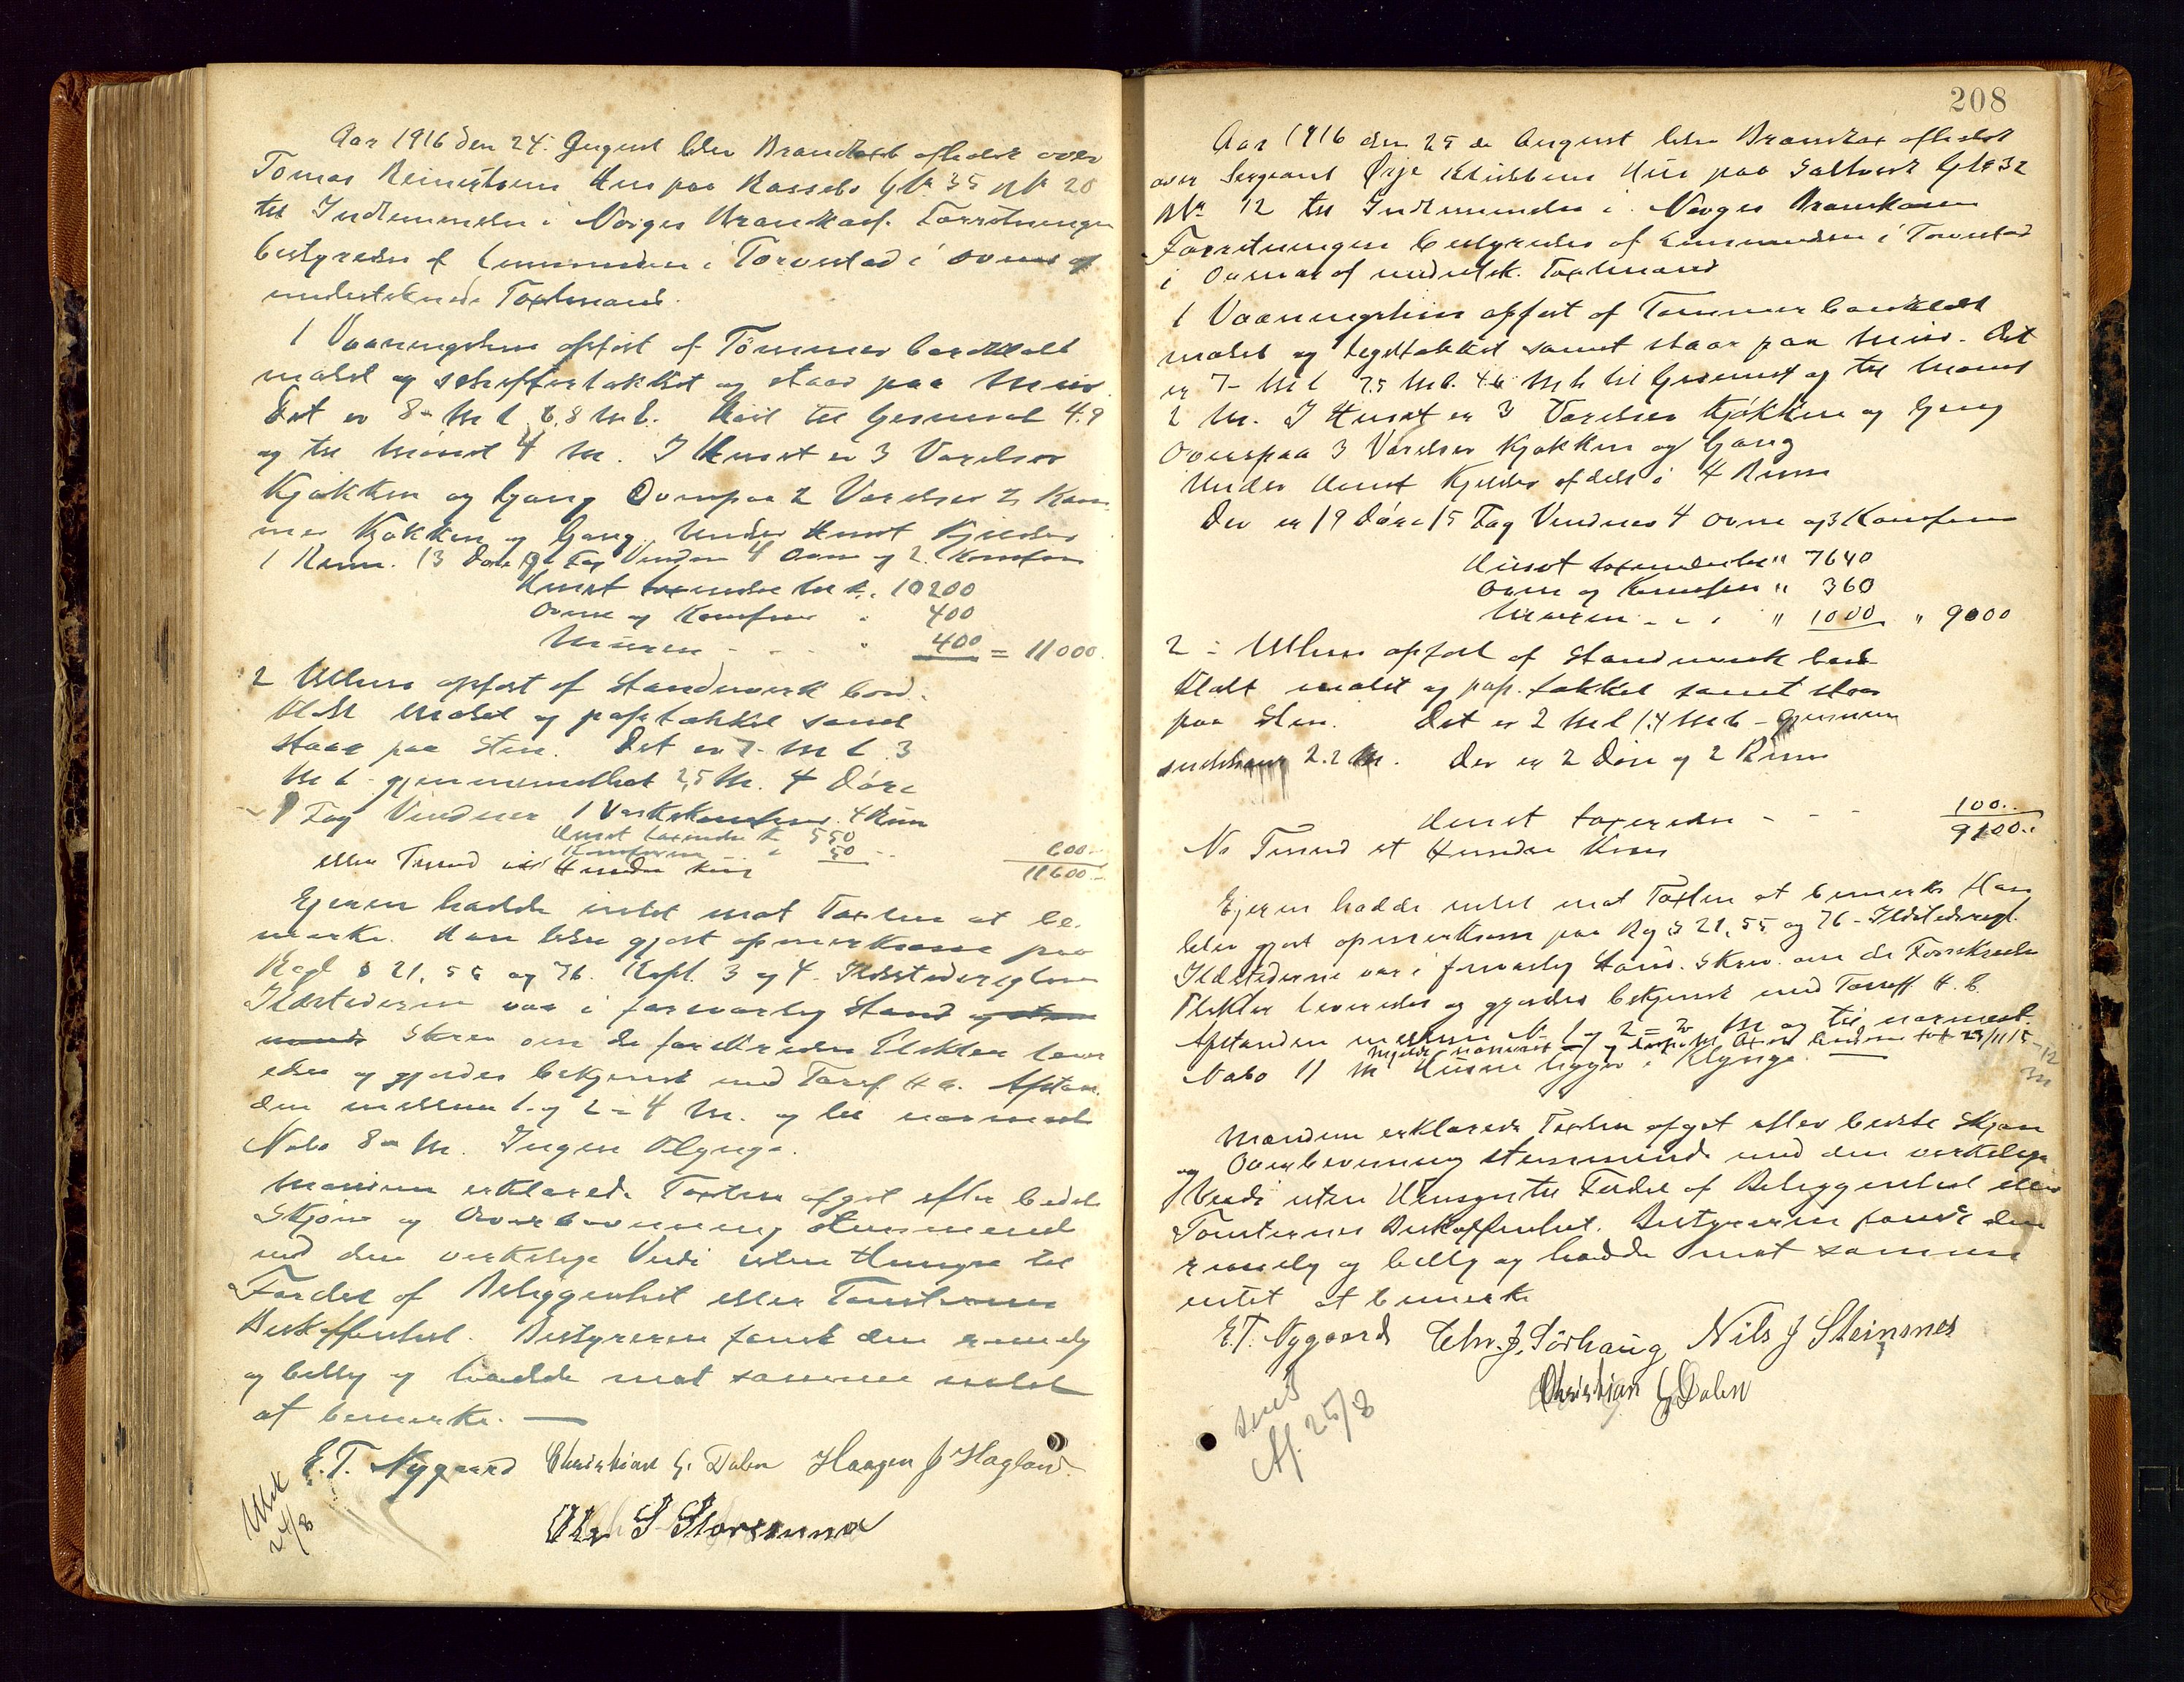 Aar 1916 den 24. August blev Brandtaxt afholdt over
Tomas Reinertsens Hus paa Bassebo G№ 35 B№ 20
til Indlemmelse i Norges Brandkasse. Forretningen
bestyredes af Lensmanden i Torvestad i Overvær af
underteknede Taxtmænd.
1 Vaaningshus opført af Tømmer bordklædt
malet og skiffertækket og staar paa Mur
Det er 8- M l 6,8 M b. Høit til Gesimsen 4.9
og til Mønet 4 M. I Huset er 3 Værelser
Kjøkken og Gang Ovenpaa 2 Værelser 2 Kam
mer Kjøkken og Gang. Under Huset Kjelder
1 Rum. 13 Døre Fag Vinduer 4 Ovne og 2 Komfur
Huset taxeredes til k. 10200
Ovne og Komfur " 400
Muren - - - " 400 = 11000.
2 Udhus opført af Standverk bord-
klædt malet og paptækket samt
staar paa Sten. Det er 7- M l 3
M b - gjennemsnitshøit 2,5 M. 4 Døre
Fag Vinduer 1 Vaskekomfur. 4 Rum
Huset taxeredes k 550
Komfuren " 50 600
eller Tusind Hundre Kroner 11600.-
Ejeren hadde intet mot Taxten at be-
merke. Han blev gjort opmerksom paa
Regl § 21, 55 og 76. Kapt. 3 og 4. Ildstedsreglerne
Ildstederne var i forsvarlig Stand
Skrev om de forskredne Plikter lever
edes og gjordes bekjendt med Tarif H b. Afstan
den mellem 1 og 2 = 4 M. og til nærmeste
Nabo 8- M. Ingen Klynge.
Mændene erklærede Taxten afgit efter bedste
Skjøn og Overbevisning stemmende
med den verkelige Verdi uten Hensyn til
Fordel af Beliggenhet eller Tomternes
Beskaffenhet. Bestyreren fandt den rimelig
og billig og hadde mot samme intet
at bemerke.
E.T. Nygaard Christian G. Dalen Haagen J Hagland.
Ole S Storesunna
Utsk
24/8
208
Aar 1916 den 25 de August blev Brandtax afholdt
over Sergeant Hus paa Saltvedt G№ 32
B№ 12 til Indlemmelse i Norges Brandkasse
Forretningen bestyredes af Lensmanden i Torvestad
i Overvær af undertek. Taxtmænd
1 Vaaningshus opført af Tømmer bordklædt
malet og teglstækket samt staar paa Mur. Det
er 7- M l 7.5 M b. 4.6 M h til Gesimset og til Mønet
2 M. I Huset er 3 Værelser Kjøkken og Gang
Ovenpaa 3 Værelser Kjøkken og Gang
Under Huset Kjelder afdelt i 4 Rum
Der er 19 Døre 15 Fag Vinduer 4 Ovne og 3 Komfurer
Huset taxeredes til " 7640
Ovne og Komfurer " 360
Muren - - - " 1000 " 9000
2 - Udhus opført af Standverk bord
klædt malet og pap. tækket samt staar
paa Sten. Det er 2 M l 1.4 M b - gjennem
snitshøit 2.2 M. Der er 2 Døre og 2 Rum
Huset taxeredes - - - 100..
Ni Tusind et Hundre Kroner 9100..
Ejeren hadde intet mot Taxten at bemerke Han
blev gjort opmerksom paa Rg § 21, 55 og 76 - Ildstedsregl.
Ildstederne var i forsvarlig Stand. Skrev. om de Forskredne
Plikter leveredes og gjordes bekjendt med Tariff H. b.
Afstanden mellem № 1 og 2 = 2 M og til nærmeste
Nabo 11 M Husene ligger i Klynge.
12
3n
Mændene erklærede Taxten afgit efter bedste Skjøn
og Overbevisning stemmende med den verkelige
Verdi uten Hensyn til Fordel af Beliggenhet eller
Tomternes Beskaffenhet. Bestyreren fandt den
rimelig og billig og hadde mot samme
intet at bemerke
E.T. Nygaard Chr. J. Sörhaug Nils J Steinsnes
Christian G Dalen
Af. 25/8